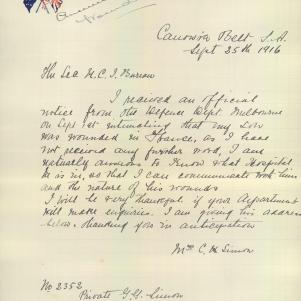 Canowie Belt S.A.
Sept 25th 1916
The Sec R.C.I. Bureau
I recieved an official
notice from the Defence Dept. Melbourne
on Sept 1st intimating that my Son
was wounded in France, as I have
not recieved any further word, I am
naturally anxious to Know what Hospital
he is in, so that I can communicate with him
and the nature of his wounds
I will be very thankful if your Department
will make enquiries. I am giving his address
below. thanking you in anticipation
Mrs C. H. Simon
No 2352
Private G. G. Simon